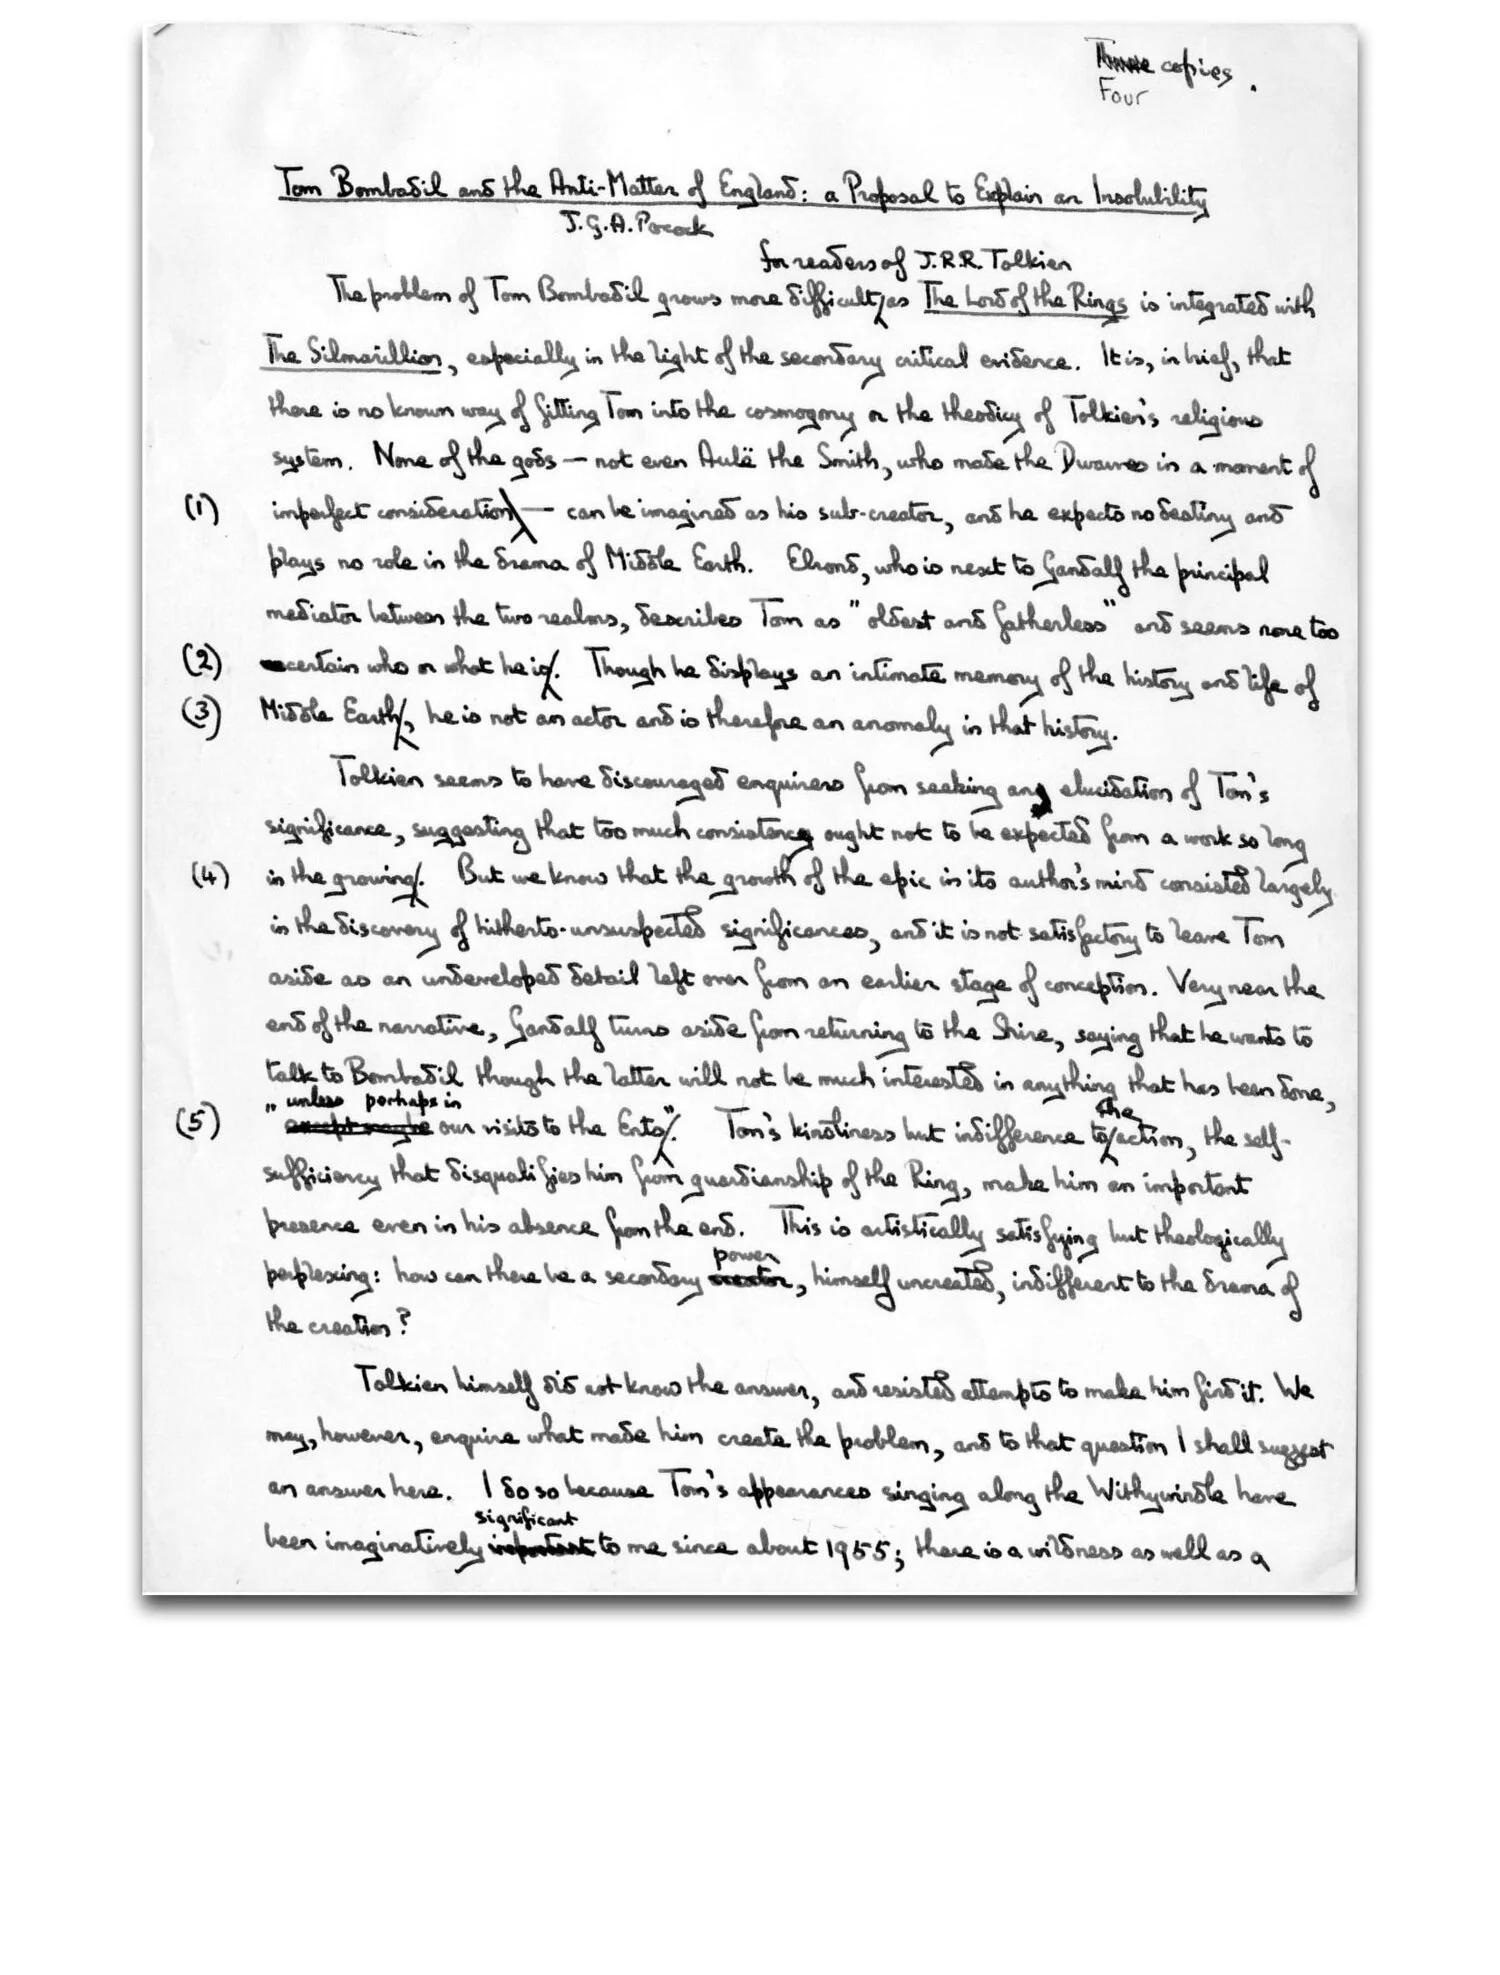 Three copies.
Four
Tom Bombadil and the Anti-Matter of England: a Proposal to Explain an Insolubility
J.G.A. Pocock
for readers of J.R.R. Tolkien
The problem of Tom Bombadil grows more difficult as The Lord of the Rings is integrated with
The Silmarillion, especially in the light of the secondary critical evidence. It is, in brief, that
there is no known way of fitting Tom into the cosmogony or the theodicy of Tolkien's religious
system. None of the gods — not even Aulë the Smith, who made the Dwarves in a moment of
(1) imperfect consideration — can be imagined as his sub-creator, and he expects no destiny and
plays no role in the drama of Middle Earth. Elrond, who is next to Gandalf the principal
mediator between the two realms, describes Tom as "oldest and fatherless" and seems none too
(2) certain who or what he is. Though he displays an intimate memory of the history and life of
(3) Middle Earth, he is not an actor and is therefore an anomaly in that history.
Tolkien seems to have discouraged enquirers from seeking any elucidation of Tom's
significance, suggesting that too much consistency ought not to be expected from a work so long
(4) in the growing. But we know that the growth of the epic in its author's mind consisted largely
in the discovery of hitherto-unsuspected significances, and it is not satisfactory to leave Tom
aside as an undeveloped detail left over from an earlier stage of conception. Very near the
end of the narrative, Gandalf turns aside from returning to the Shire, saying that he wants to
talk to Bombadil though the latter will not be much interested in anything that has been done,
" unless perhaps in
the
(5) except maybe our visits to the Ents". Tom's kindliness but indifference to action, the self-
sufficiency that disqualifies him from guardianship of the Ring, make him an important
presence even in his absence from the end. This is artistically satisfying but theologically
power
perplexing: how can there be a secondary creator, himself uncreated, indifferent to the drama of
the creation?
Tolkien himself did not know the answer, and resisted attempts to make him find it. We
may, however, enquire what made him create the problem, and to that question I shall suggest
an answer here. I do so because Tom's appearances singing along the Withywindle have
significant
been imaginatively important to me since about 1955; there is a wildness as well as a